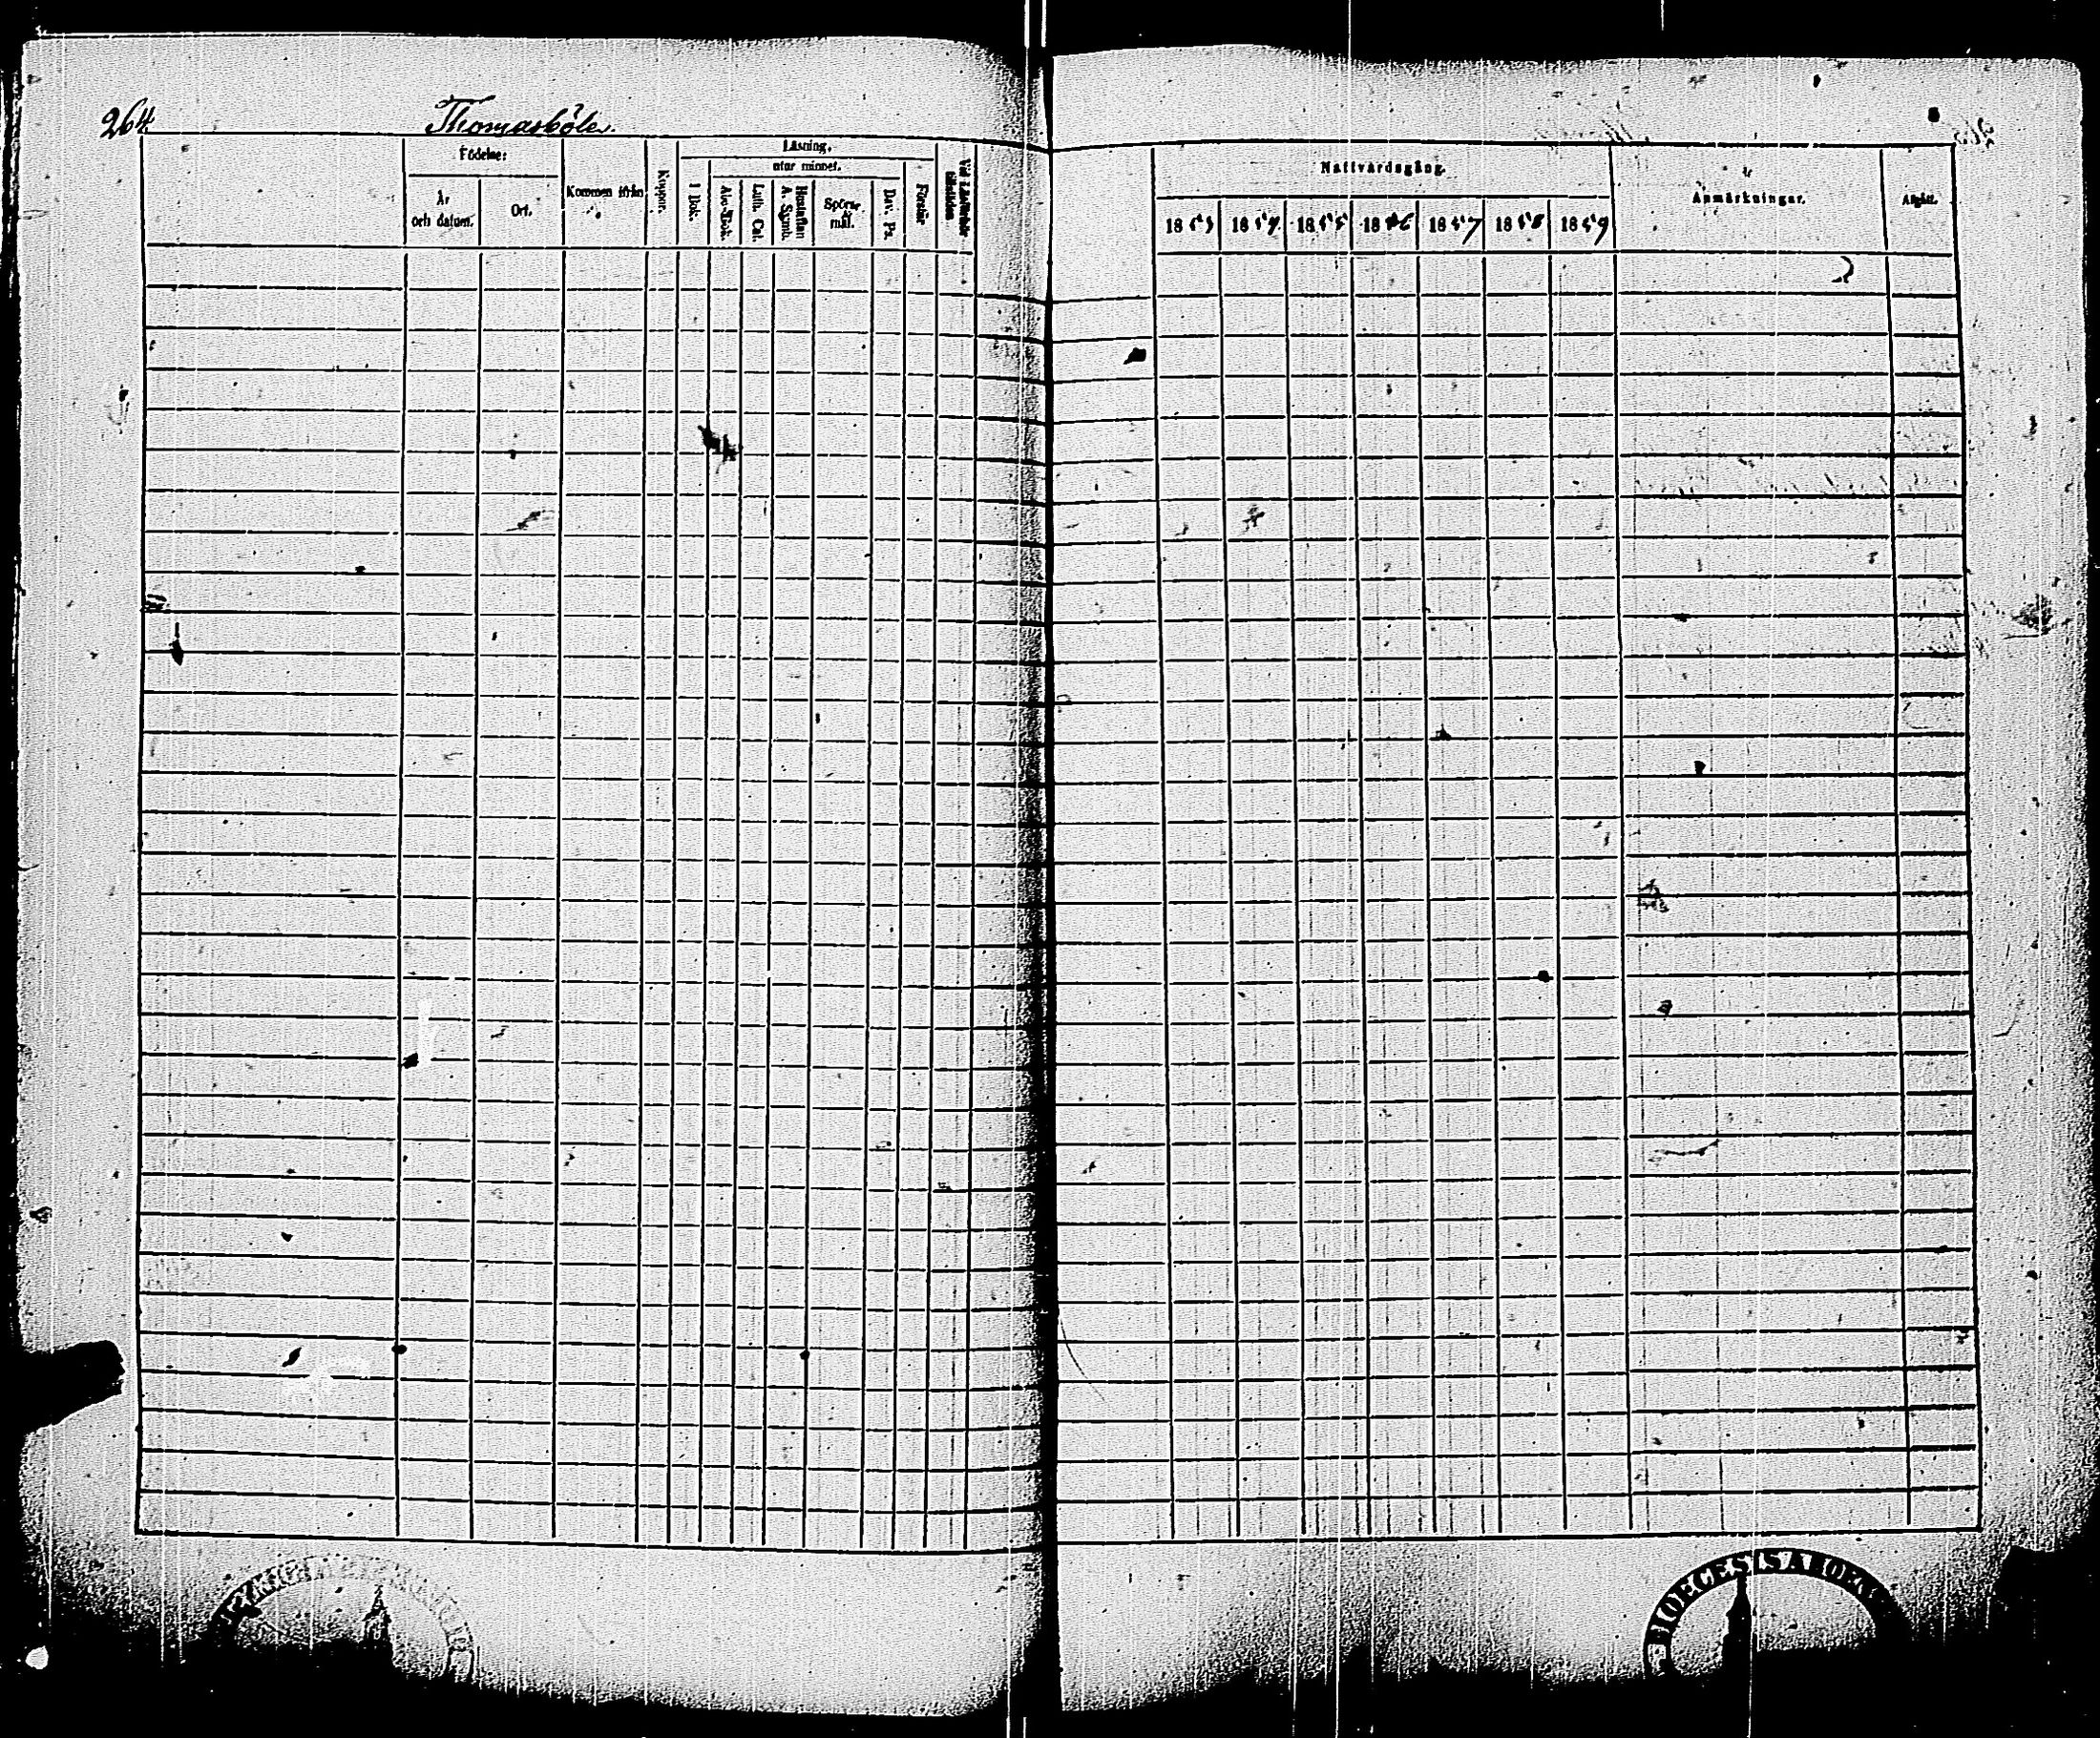 264.
Thomasböle.
Födelse:
År
och datum.
Ort.
Kommen ifrån
Koppor.
Läsning,
utur minnet.
I Bok.
Abc-Bok.
Luth. Cat.
Hustaflan
A. Symb.
Spörs-
mål.
Dav. Ps.
Förstår
Vid Läsförhör
tillstädes
Nattvardsgång.
1853
1854
1855
1856
1857
1858
1859
Anmärkningar.
Afgått.
DIOECESIS ABOENS